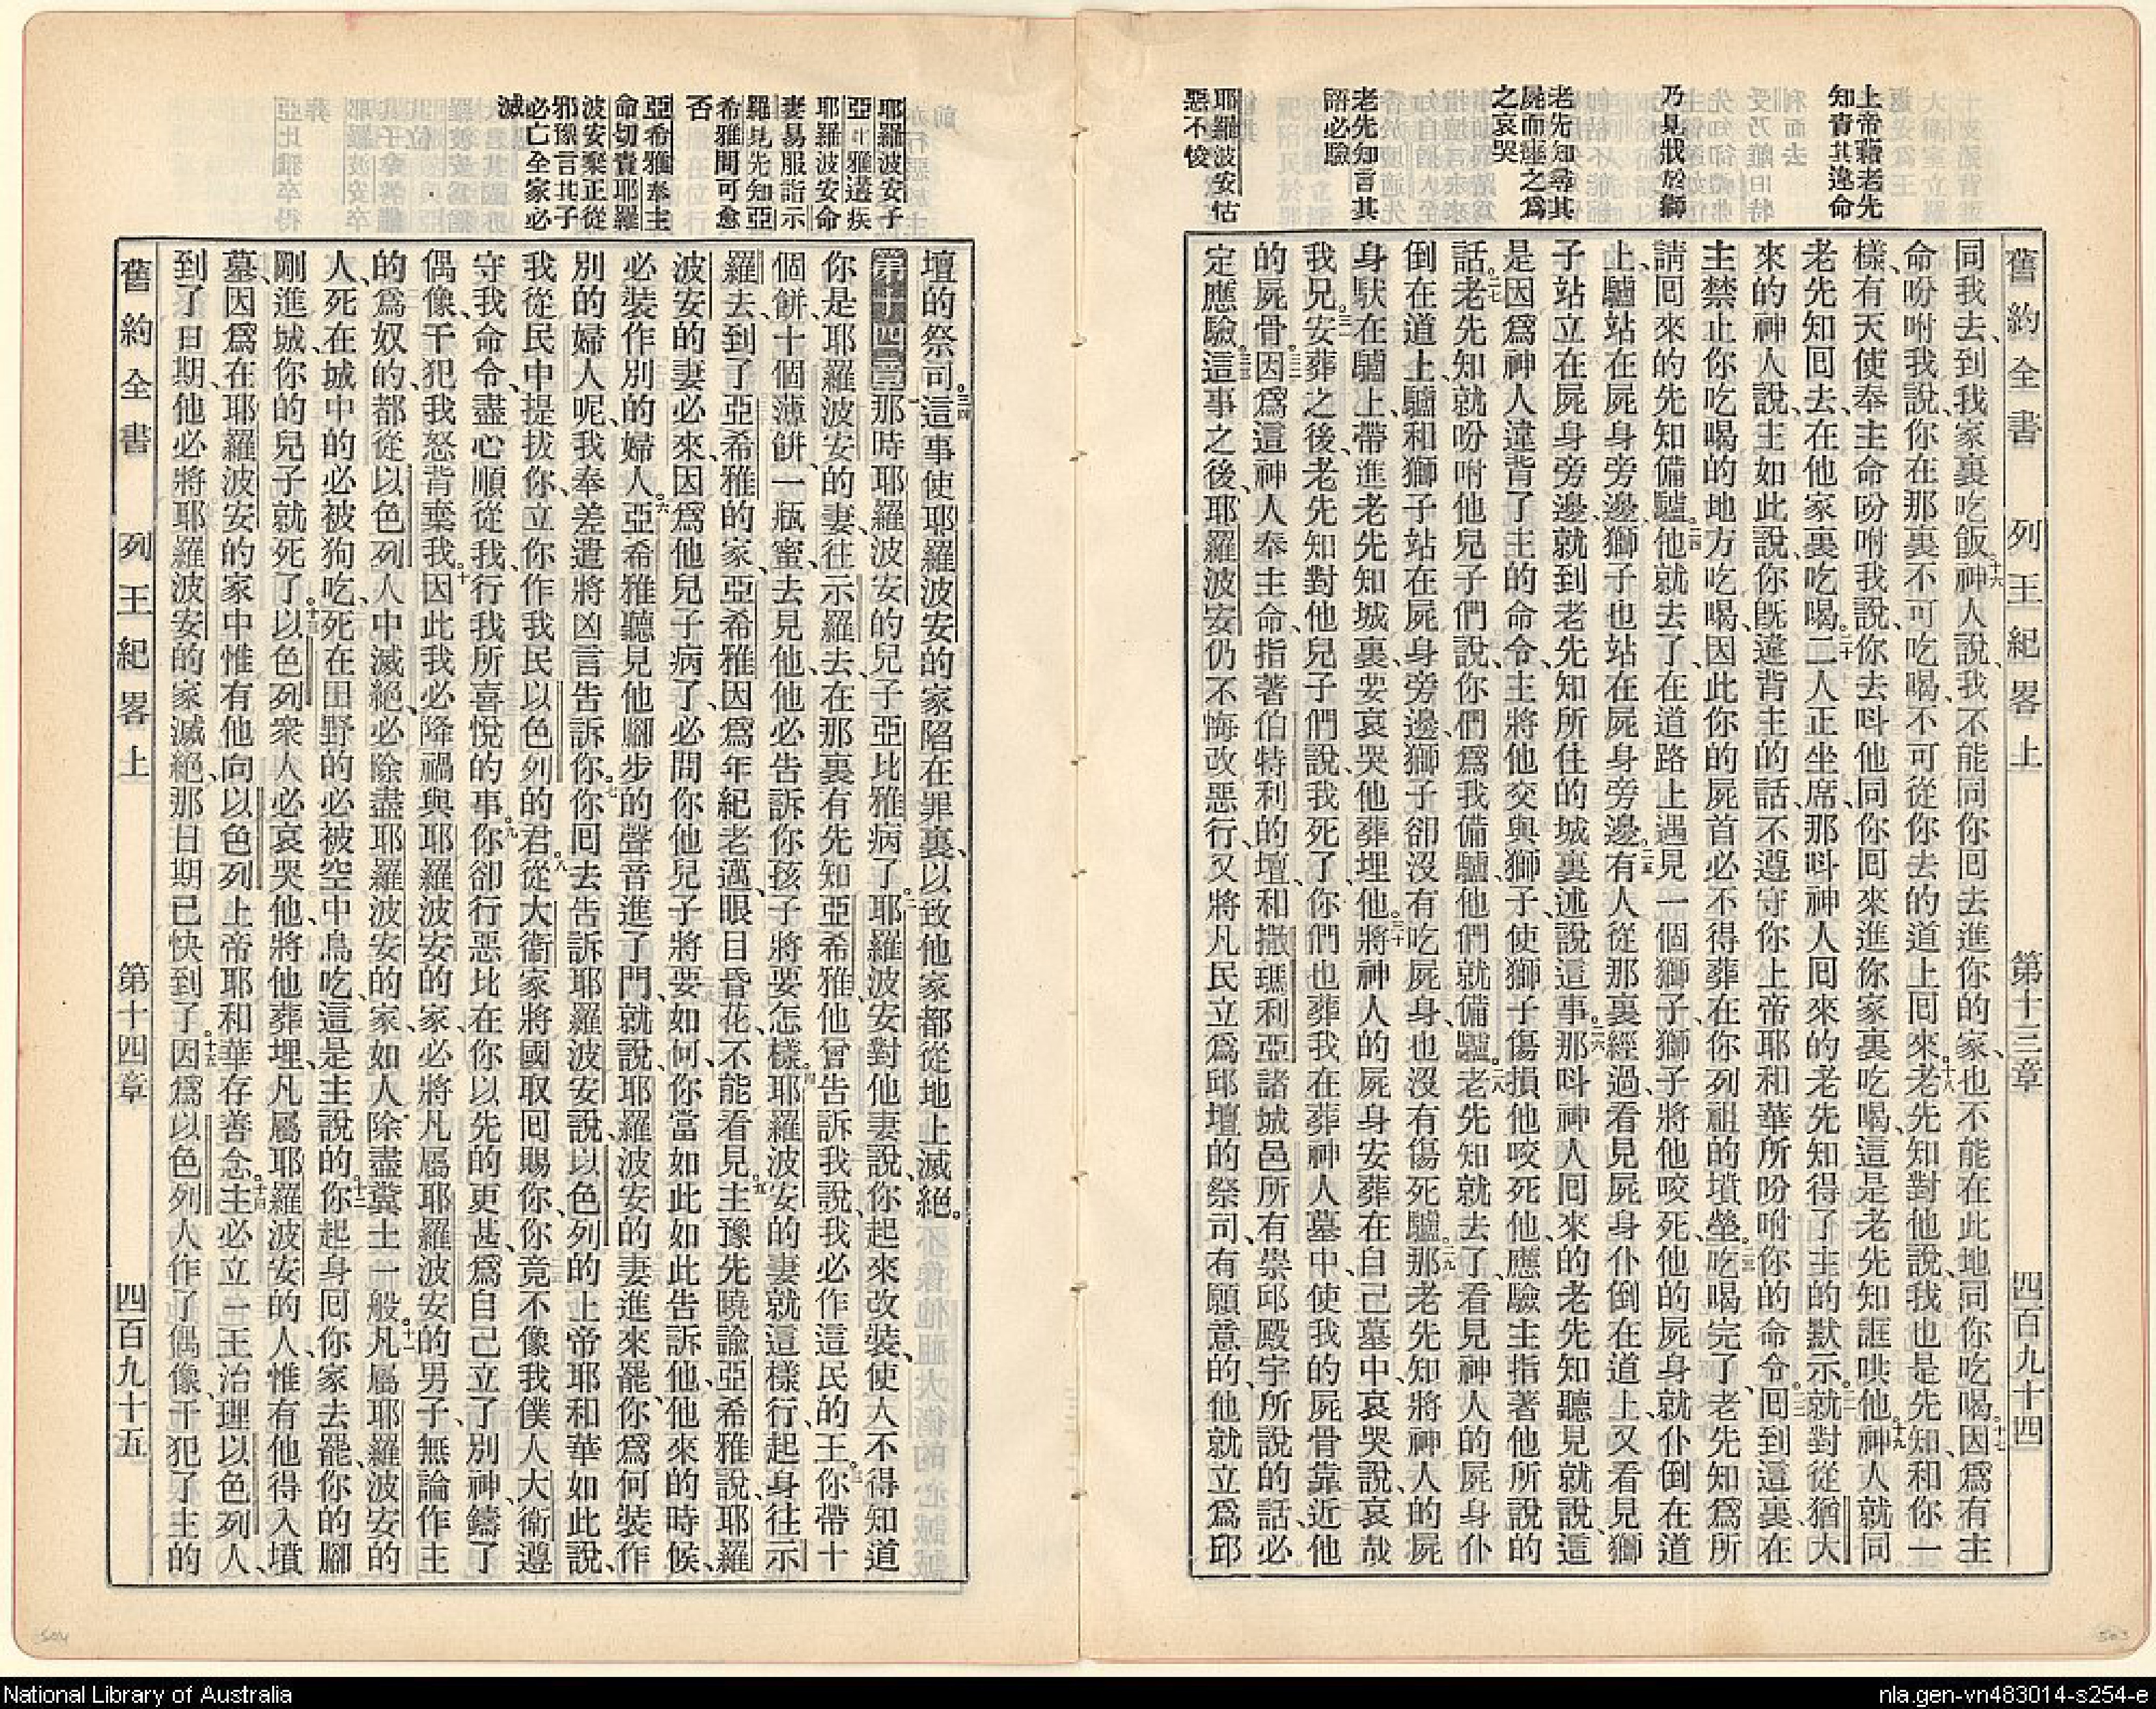 舊約全書 列王紀畧上 第十三章 四百九十四
上帝藉老先
知責其違命
乃見戕於獅
老先知尋其
屍而瘞之爲
之哀哭
老先知言其
語必驗
耶羅波安怙
惡不悛
同我去、到我家裏吃飯。十六神人說、我不能同你囘去進你的家、也不能在此地同你吃喝。十七因爲有主
命吩咐我說、你在那裏不可吃喝、不可從你去的道上囘來。十八老先知對他說、我也是先知、和你一
樣、有天使奉主命吩咐我說、你去呌他同你囘來進你家裏吃喝、這是老先知誆哄他。十九神人就同
老先知囘去、在他家裏吃喝。二十二人正坐席、那呌神人囘來的老先知得了主的默示。二一就對從猶大
來的神人說、主如此說、你旣違背主的話、不遵守你上帝耶和華所吩咐你的命令。二二囘到這裏、在
主禁止你吃喝的地方吃喝、因此你的屍首必不得葬在你列祖的墳塋。二三吃喝完了、老先知爲所
請囘來的先知備驢。二四他就去了、在道路上遇見一個獅子、獅子將他咬死、他的屍身就仆倒在道
上、驢站在屍身旁邊、獅子也站在屍身旁邊。二五有人從那裏經過、看見屍身仆倒在道上、又看見獅
子站立在屍身旁邊、就到老先知所住的城裏述說這事。二六那呌神人囘來的老先知聽見就說、這
是因爲神人違背了主的命令、主將他交與獅子、使獅子傷損他咬死他、應驗主指著他所說的
話。二七老先知就吩咐他兒子們說、你們爲我備驢、他們就備驢。二八老先知就去了、看見神人的屍身仆
倒在道上、驢和獅子站在屍身旁邊、獅子卻沒有吃屍身、也沒有傷死驢。二九那老先知將神人的屍
身馱在驢上、帶進老先知城裏、要哀哭他葬埋他。三十將神人的屍身安葬在自己墓中、哀哭說、哀哉
我兄。三一安葬之後、老先知對他兒子們說、我死了、你們也葬我在葬神人墓中、使我的屍骨靠近他
的屍骨。三二因爲這神人奉主命、指著伯特利的壇、和撒瑪利亞諸城邑所有崇邱殿宇所說的話、必
定應驗。三三這事之後、耶羅波安仍不悔改惡行、又將凡民立爲邱壇的祭司、有願意的、他就立爲邱
耶羅波安子
亞比雅遘疾
耶羅波安命
妻易服詣示
羅見先知亞
希雅問可愈
否
亞希雅奉主
命切責耶羅
波安棄正從
邪豫言其子
必亡全家必
滅
壇的祭司。三四這事使耶羅波安的家陷在罪裏、以致他家都從地上滅絕。
第十四章 一那時耶羅波安的兒子亞比雅病了。二耶羅波安對他妻說、你起來改裝、使人不得知道
你是耶羅波安的妻、往示羅去、在那裏有先知亞希雅、他曾告訴我說、我必作這民的王。三你帶十
個餅、十個薄餅、一瓶蜜、去見他、他必告訴你孩子將要怎樣。四耶羅波安的妻就這樣行、起身往示
羅去、到了亞希雅的家、亞希雅因爲年紀老邁、眼目昏花、不能看見。五主豫先曉諭亞希雅說、耶羅
波安的妻必來、因爲他兒子病了、必問你他兒子將要如何、你當如此如此告訴他、他來的時候、
必裝作別的婦人。六亞希雅聽見他腳步的聲音進了門、就說、耶羅波安的妻進來罷、你爲何裝作
別的婦人呢、我奉差遣將凶言告訴你。七你囘去告訴耶羅波安說、以色列的上帝耶和華如此說、
我從民中提拔你、立你作我民以色列的君。八從大衞家將國取囘賜你、你竟不像我僕人大衞遵
守我命令、盡心順從我、行我所喜悅的事。九你卻行惡比在你以先的更甚、爲自己立了別神、鑄了
偶像、干犯我怒、背棄我。十因此我必降禍與耶羅波安的家、必將凡屬耶羅波安的男子、無論作主
的、爲奴的、都從以色列人中滅絕、必除盡耶羅波安的家、如人除盡糞土一般。十一凡屬耶羅波安的
人、死在城中的必被狗吃、死在田野的必被空中鳥吃、這是主說的。十二你起身囘你家去罷、你的腳
剛進城、你的兒子就死了。十三以色列衆人必哀哭他、將他葬埋、凡屬耶羅波安的人、惟有他得入墳
墓、因爲在耶羅波安的家中惟有他向以色列上帝耶和華存善念。十四主必立一王治理以色列人、
到了日期、他必將耶羅波安的家滅絕、那日期已快到了。十五因爲以色列人作了偶像、干犯了主的
舊約全書 列王紀畧上 第十四章 四百九十五
504
503
National Library of Australia
nla.gen-vn483014-s254-e